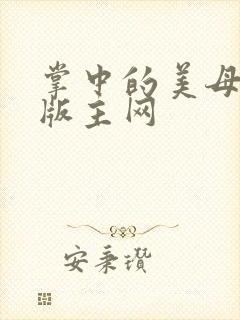 掌中的美母
版主网
安秉瓒